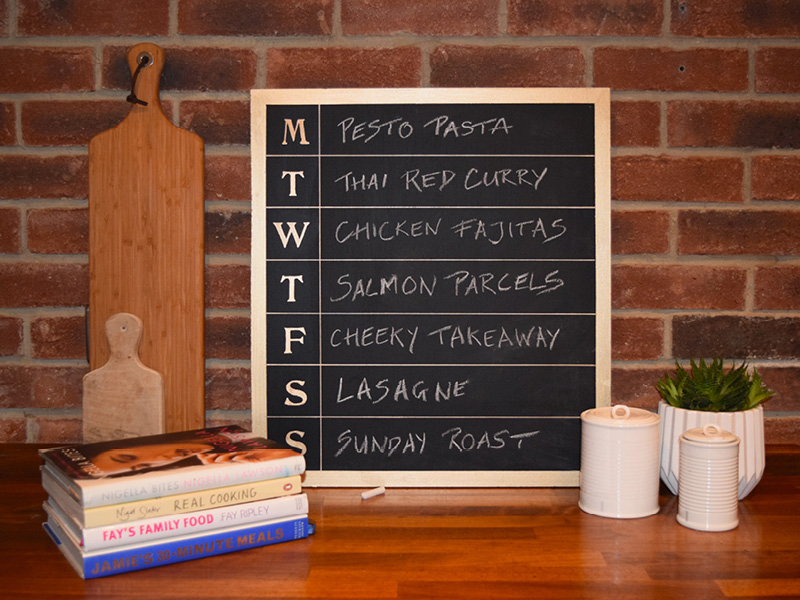 M PESTO PASTA
T THAI RED CURRY
W CHICKEN FAJITAS
T SALMON PARCELS
F CHEEKY TAKEAWAY
S LASAGNE
S SUNDAY ROAST
NIGELLA BITES NIGELLA LAWSON
Nigel Slater REAL COOKING
FAY'S FAMILY FOOD FAY RIPLEY
JAMIE'S 30-MINUTE MEALS